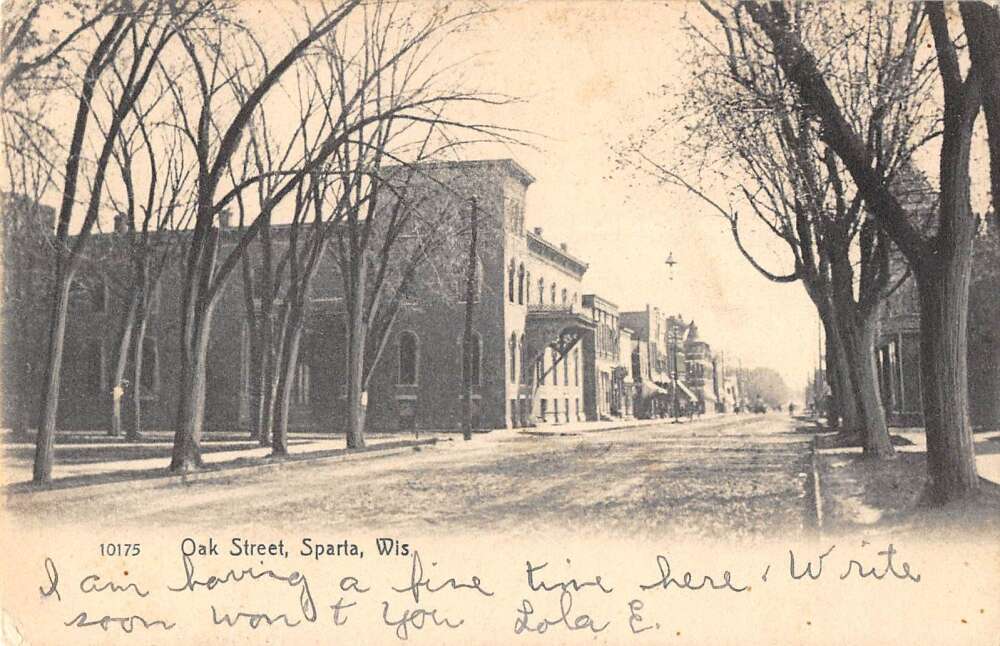 10175 Oak Street, Sparta, Wis.
I am having a fine time here. Write
soon won't you Lola E.